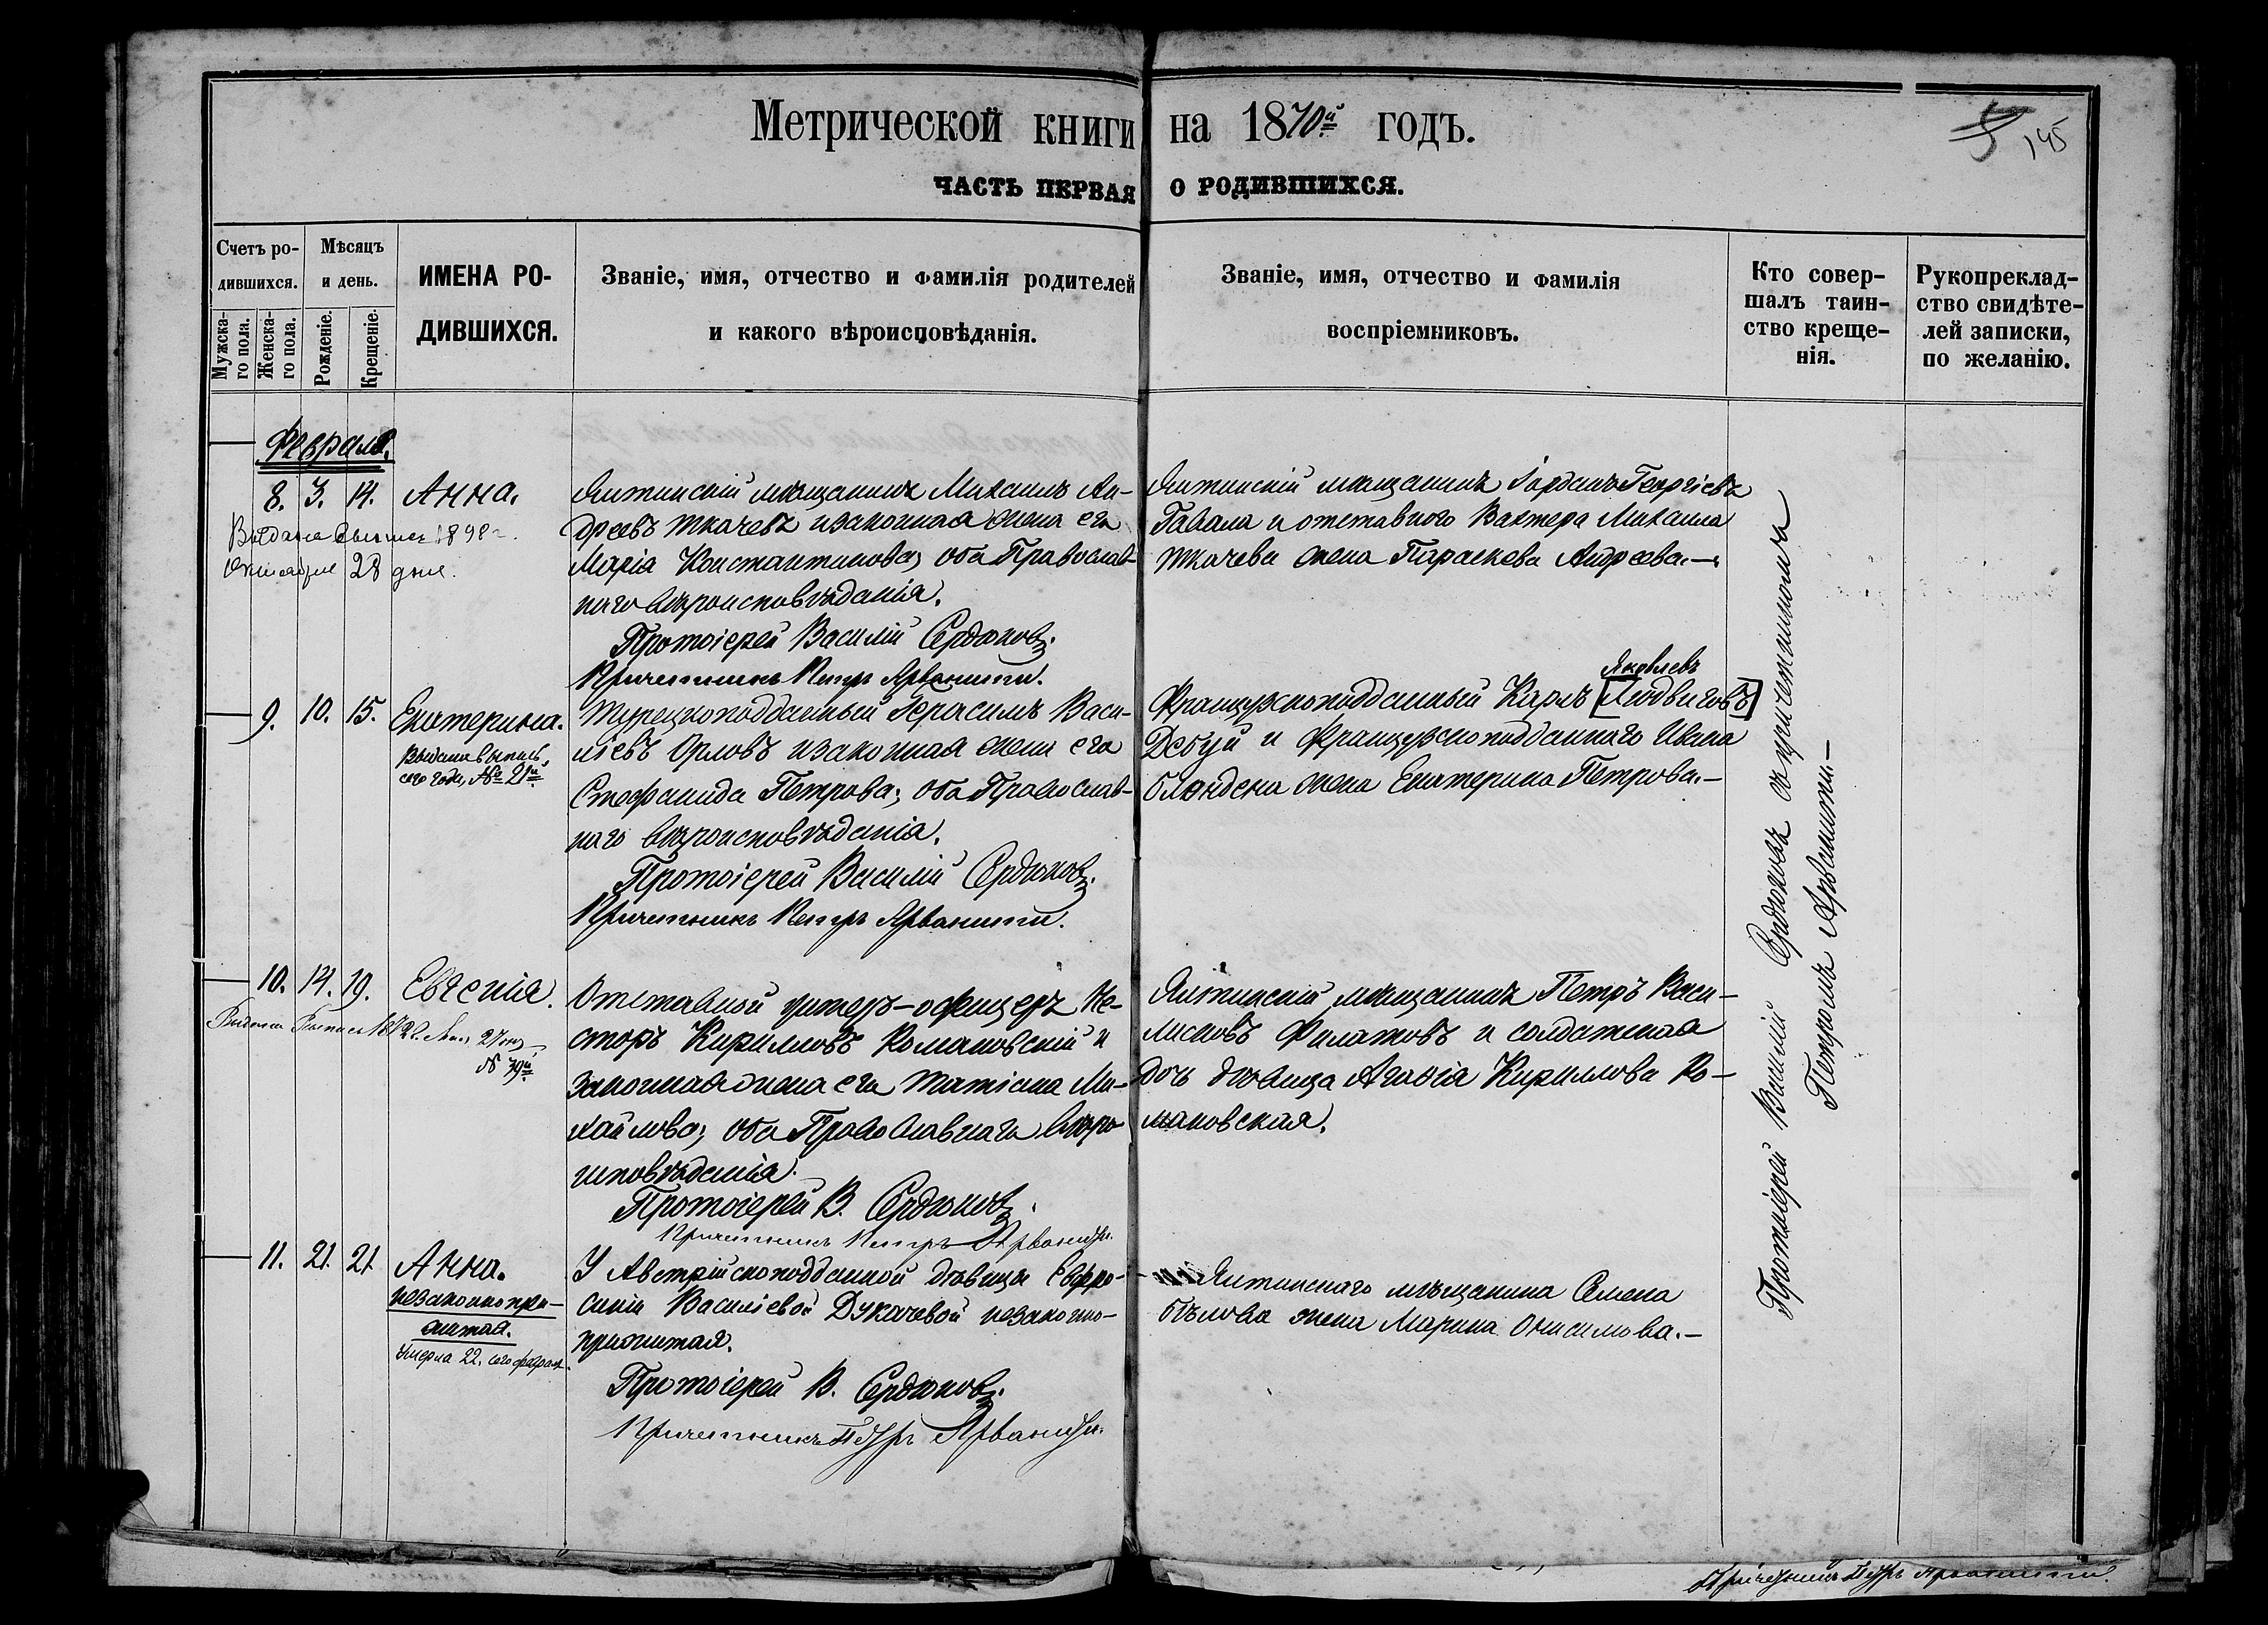 Метрической книги на 1870й годъ.
5 145
ЧАСТЬ ПЕРВАЯ О РОДИВШИХСЯ.
Счетъ ро-
дившихся.
Мужска-
го пола.
Женска-
го пола.
Мѣсяцъ
и день.
Рожденіе.
Крещеніе.
ИМЕНА РО-
ДИВШИХСЯ.
Званіе, имя, отчество и фамилія родителей
и какого вѣроисповѣданія.
Званіе, имя, отчество и фамилія
воспріемниковъ.
Кто совер-
шалъ таин-
ство креще-
нія.
Рукопреклад-
ство свидѣте-
лей записки,
по желанію.
Февраль.
8. 3. 14. Анна.
Выдана выпись 1898 г.
Октября 28 дня.
Ялтинскій мѣщанинъ Михаилъ Ан-
дреевъ Ткачевъ и законная жена его
Марія Константинова, оба Православ-
наго вѣроисповѣданія.
Протоіерей Василій Сердюковъ.
Причетникъ Петръ Арванити.
Ялтинскій мѣщанинъ Іорданъ Георгіевъ
Гавала и отставного Вахтера Михаила
Ткачева жена Параскева Андреева.—
9. 10. 15. Екатерина.
Выдана выпись,
сего года, № 21й
Турецкоподданный Герасимъ Васи-
ліевъ Орловъ и законная жена его
Стефанида Петрова; оба Православ-
наго вѣроисповѣданія.
Протоіерей Василій Сердюковъ.
Причетникъ Петръ Арванити.
Яковлевъ
Французскоподданный Карлъ [Людвиговъ]
Дебуи и Французскоподданнаго Ивана
Бландена жена Екатерина Петрова.—
10. 14. 19. Евгенія.
Выдана Выпись 27
№ 79й
Отставной унтеръ-офицеръ Не-
сторъ Кирилловъ Романовскій и
законная жена его Татіана Ми-
хайлова; оба Православнаго вѣро-
исповѣданія.
Протоіерей В. Сердюковъ.
Причетникъ Петръ Арванити.
Ялтинскій мѣщанинъ Петръ Васи-
лисковъ Филатовъ и солдатская
дочь дѣвица Агафія Кириллова Ро-
мановская.
11. 21. 21 Анна.
незаконнопри-
житая.
Умерла 22. сего февраля.
У Австрійскоподданной дѣвицы Евфро-
синіи Василіевой Дукачевой незаконно-
прижитая.
Протоіерей В. Сердюковъ.
Причетникъ Петръ Арванити.
Ялтинскаго мѣщанина Семена
Бѣлова жена Марина Онисимова.—
Протоіерей Василій Сердюковъ съ причетникомъ
Петромъ Арванити.—
Причетникъ Петръ Арванити.